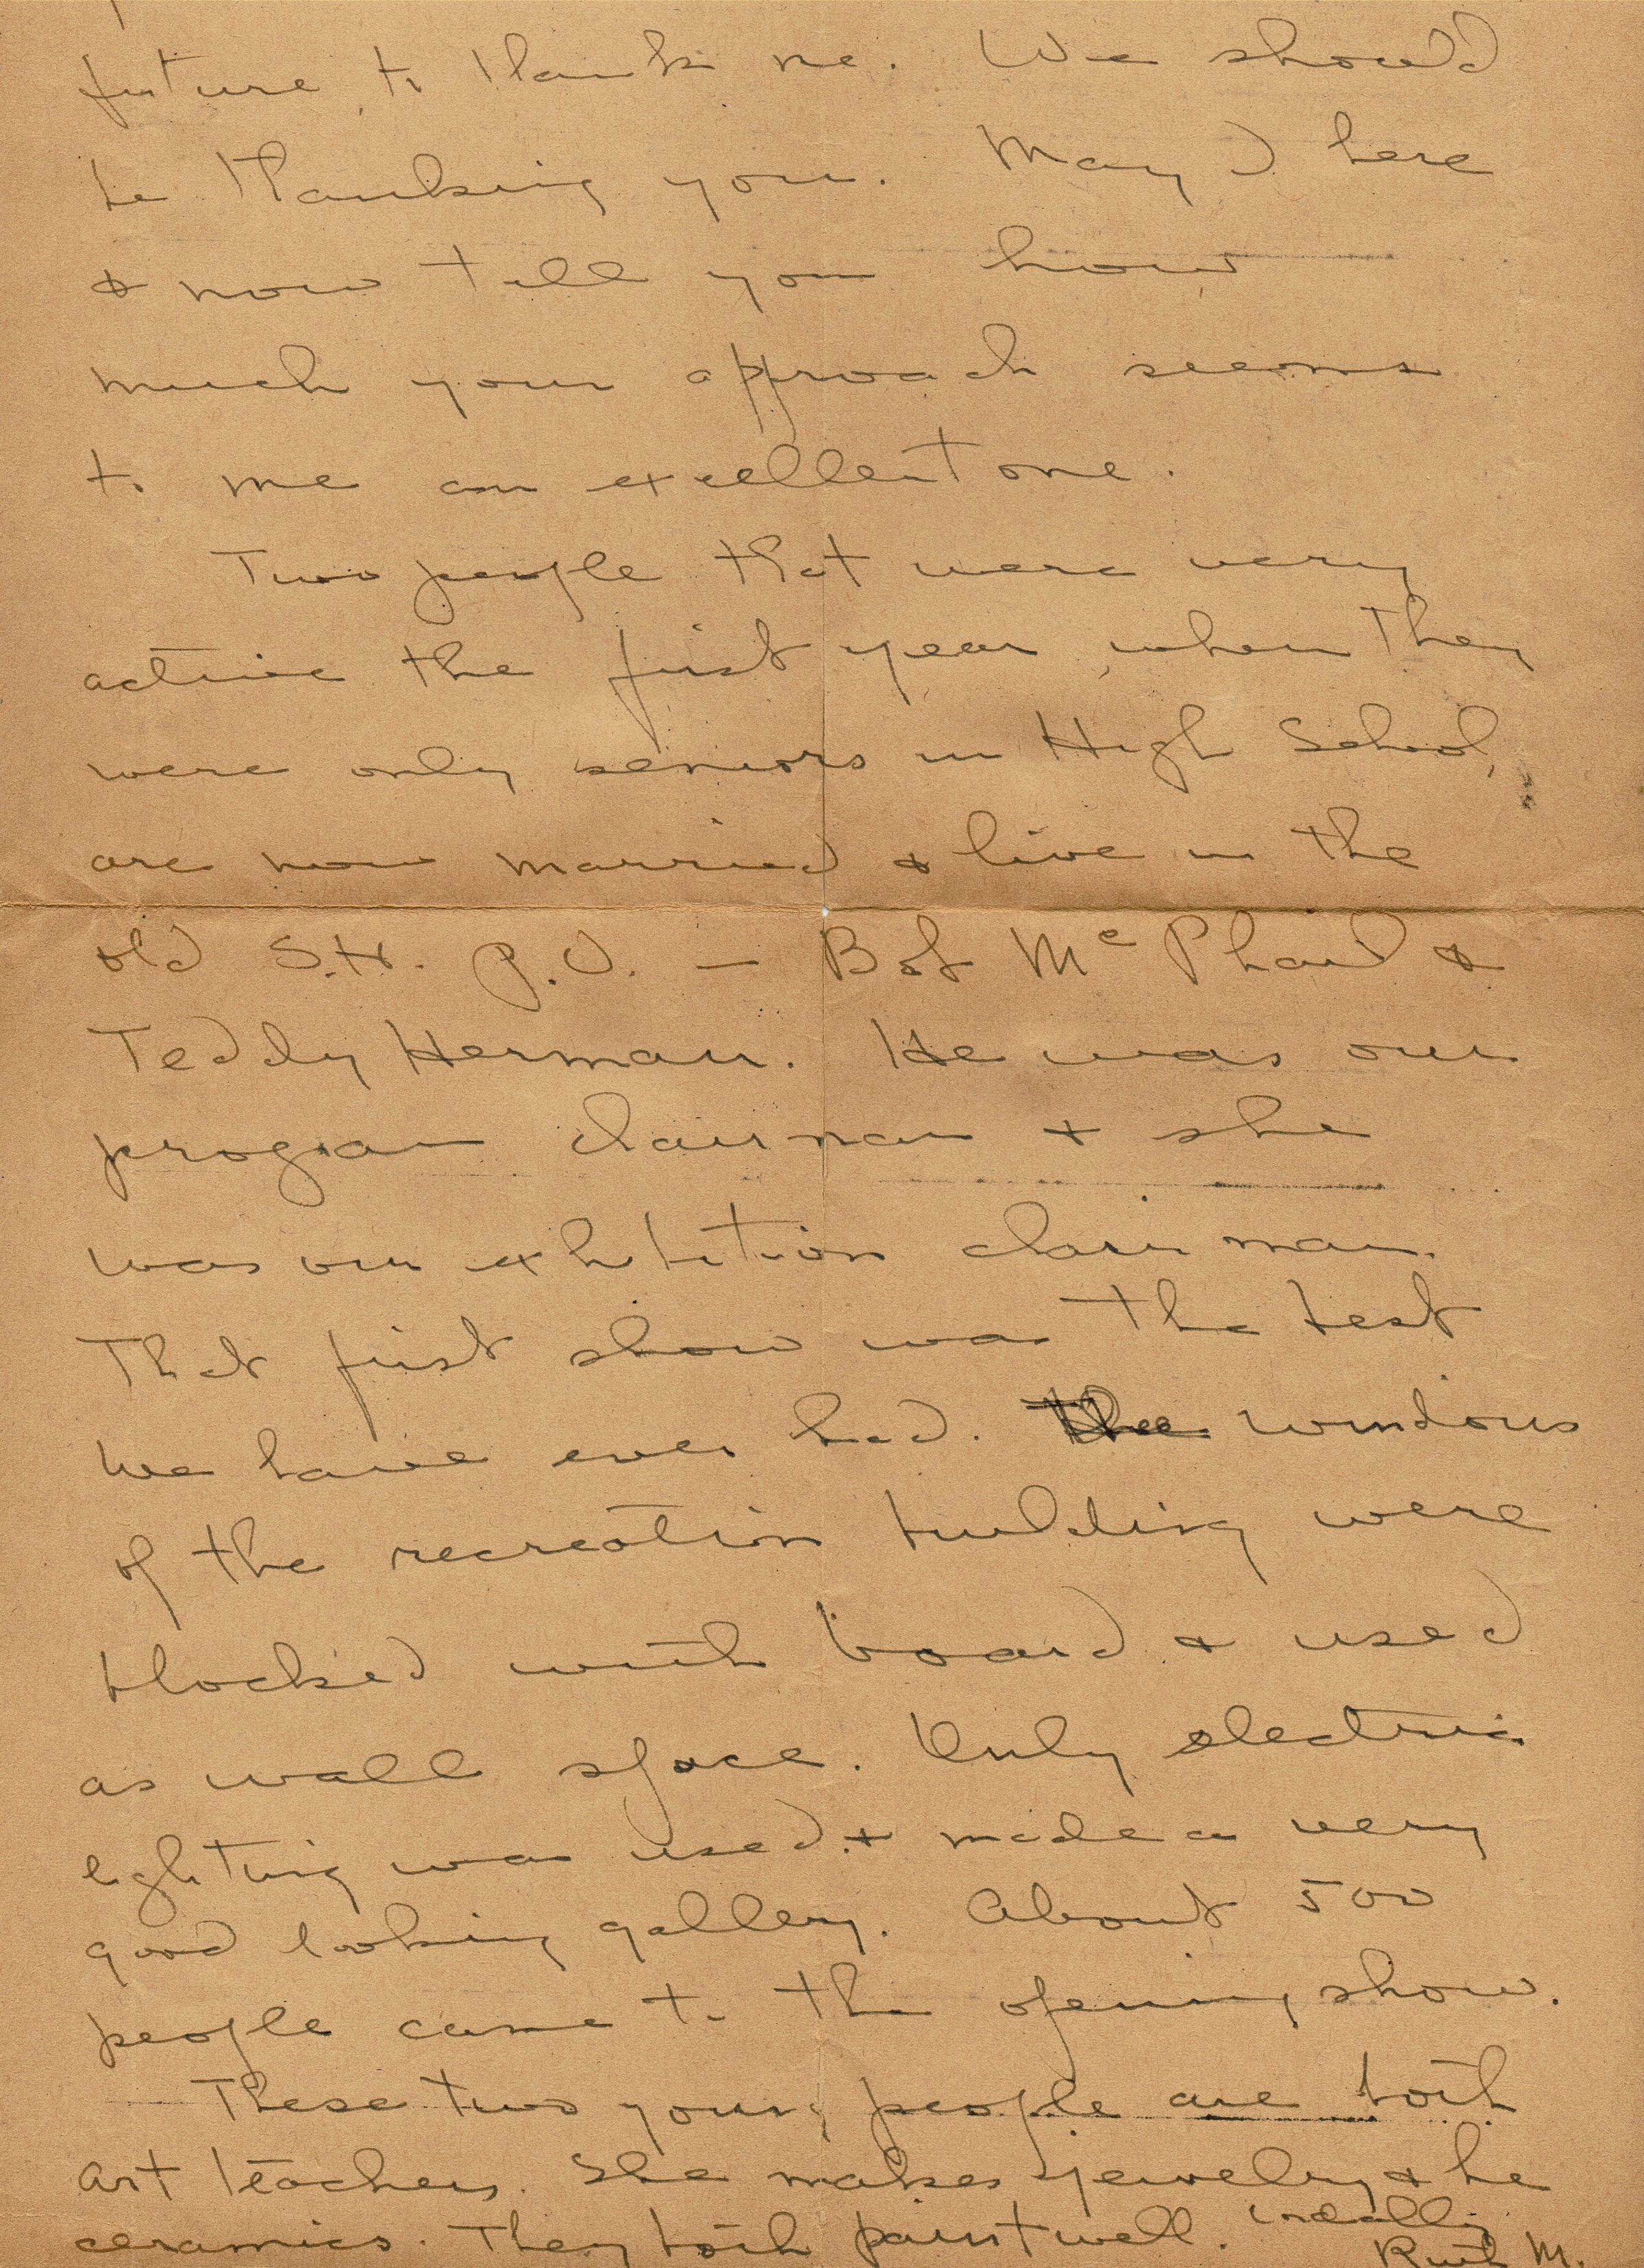 future to thank me. We should
be thanking you. May I here
& now tell you how
much your approach seems
to me an excellent one.
Two people that were very
active the first year when they
were only seniors in High School,
are now married & live in the
old S.H. P.O. — Bob McPhail &
Teddy Herman. He was our
program chairman & she
was our exhibition chairman.
That first show was the best
we have ever had. The windows
of the recreation building were
blocked with board & used
as wall space. Only electric
lighting was used & made a very
good looking gallery. About 500
people came to the opening show.
These two young people are both
art teachers. She makes jewelry & he
ceramics. They both paint well. Cordially
Ruth M